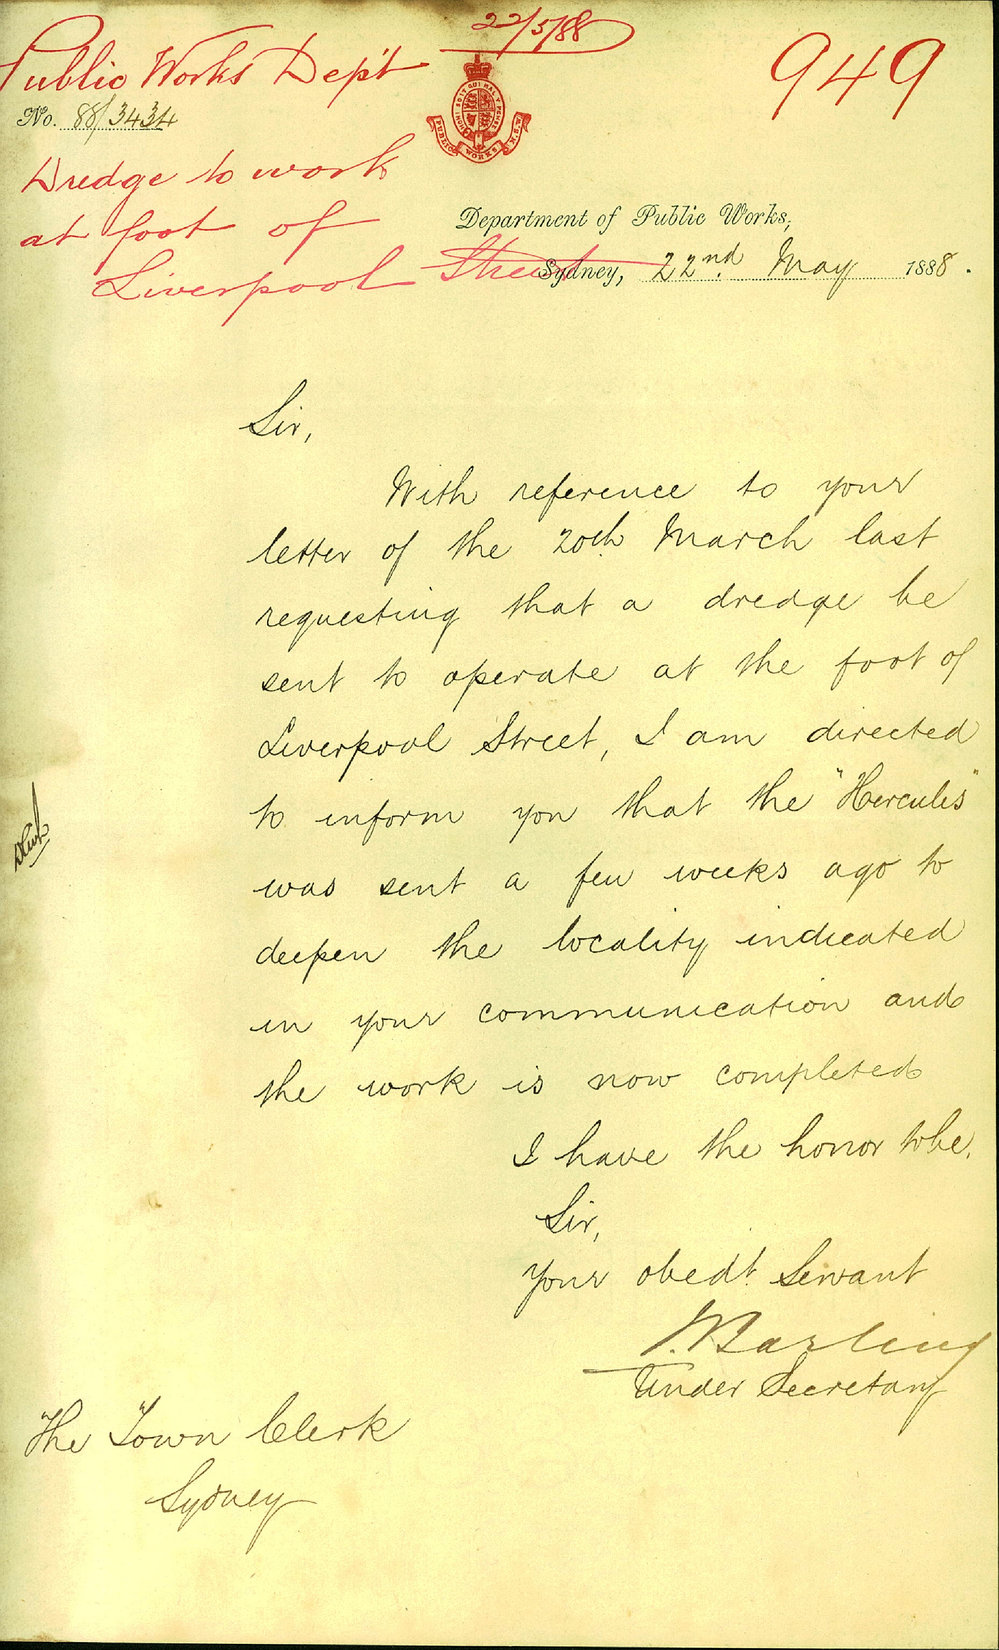 22/5/88
Public Works Dep't
949
No. 88/3434
PUBLIC WORKS N.S.W.
Dredge to work
at foot of
Liverpool Street
Department of Public Works,
Sydney, 22nd. May 1888.
Sir,
With reference to your
letter of the 20th March last
requesting that a dredge be
sent to operate at the foot of
Liverpool Street, I am directed
to inform you that the "Hercules"
was sent a few weeks ago to
deepen the locality indicated
in your communication and
the work is now completed
I have the honor to be,
Sir,
Your obedt. Servant
J. Barling
Under Secretary
The Town Clerk
Sydney